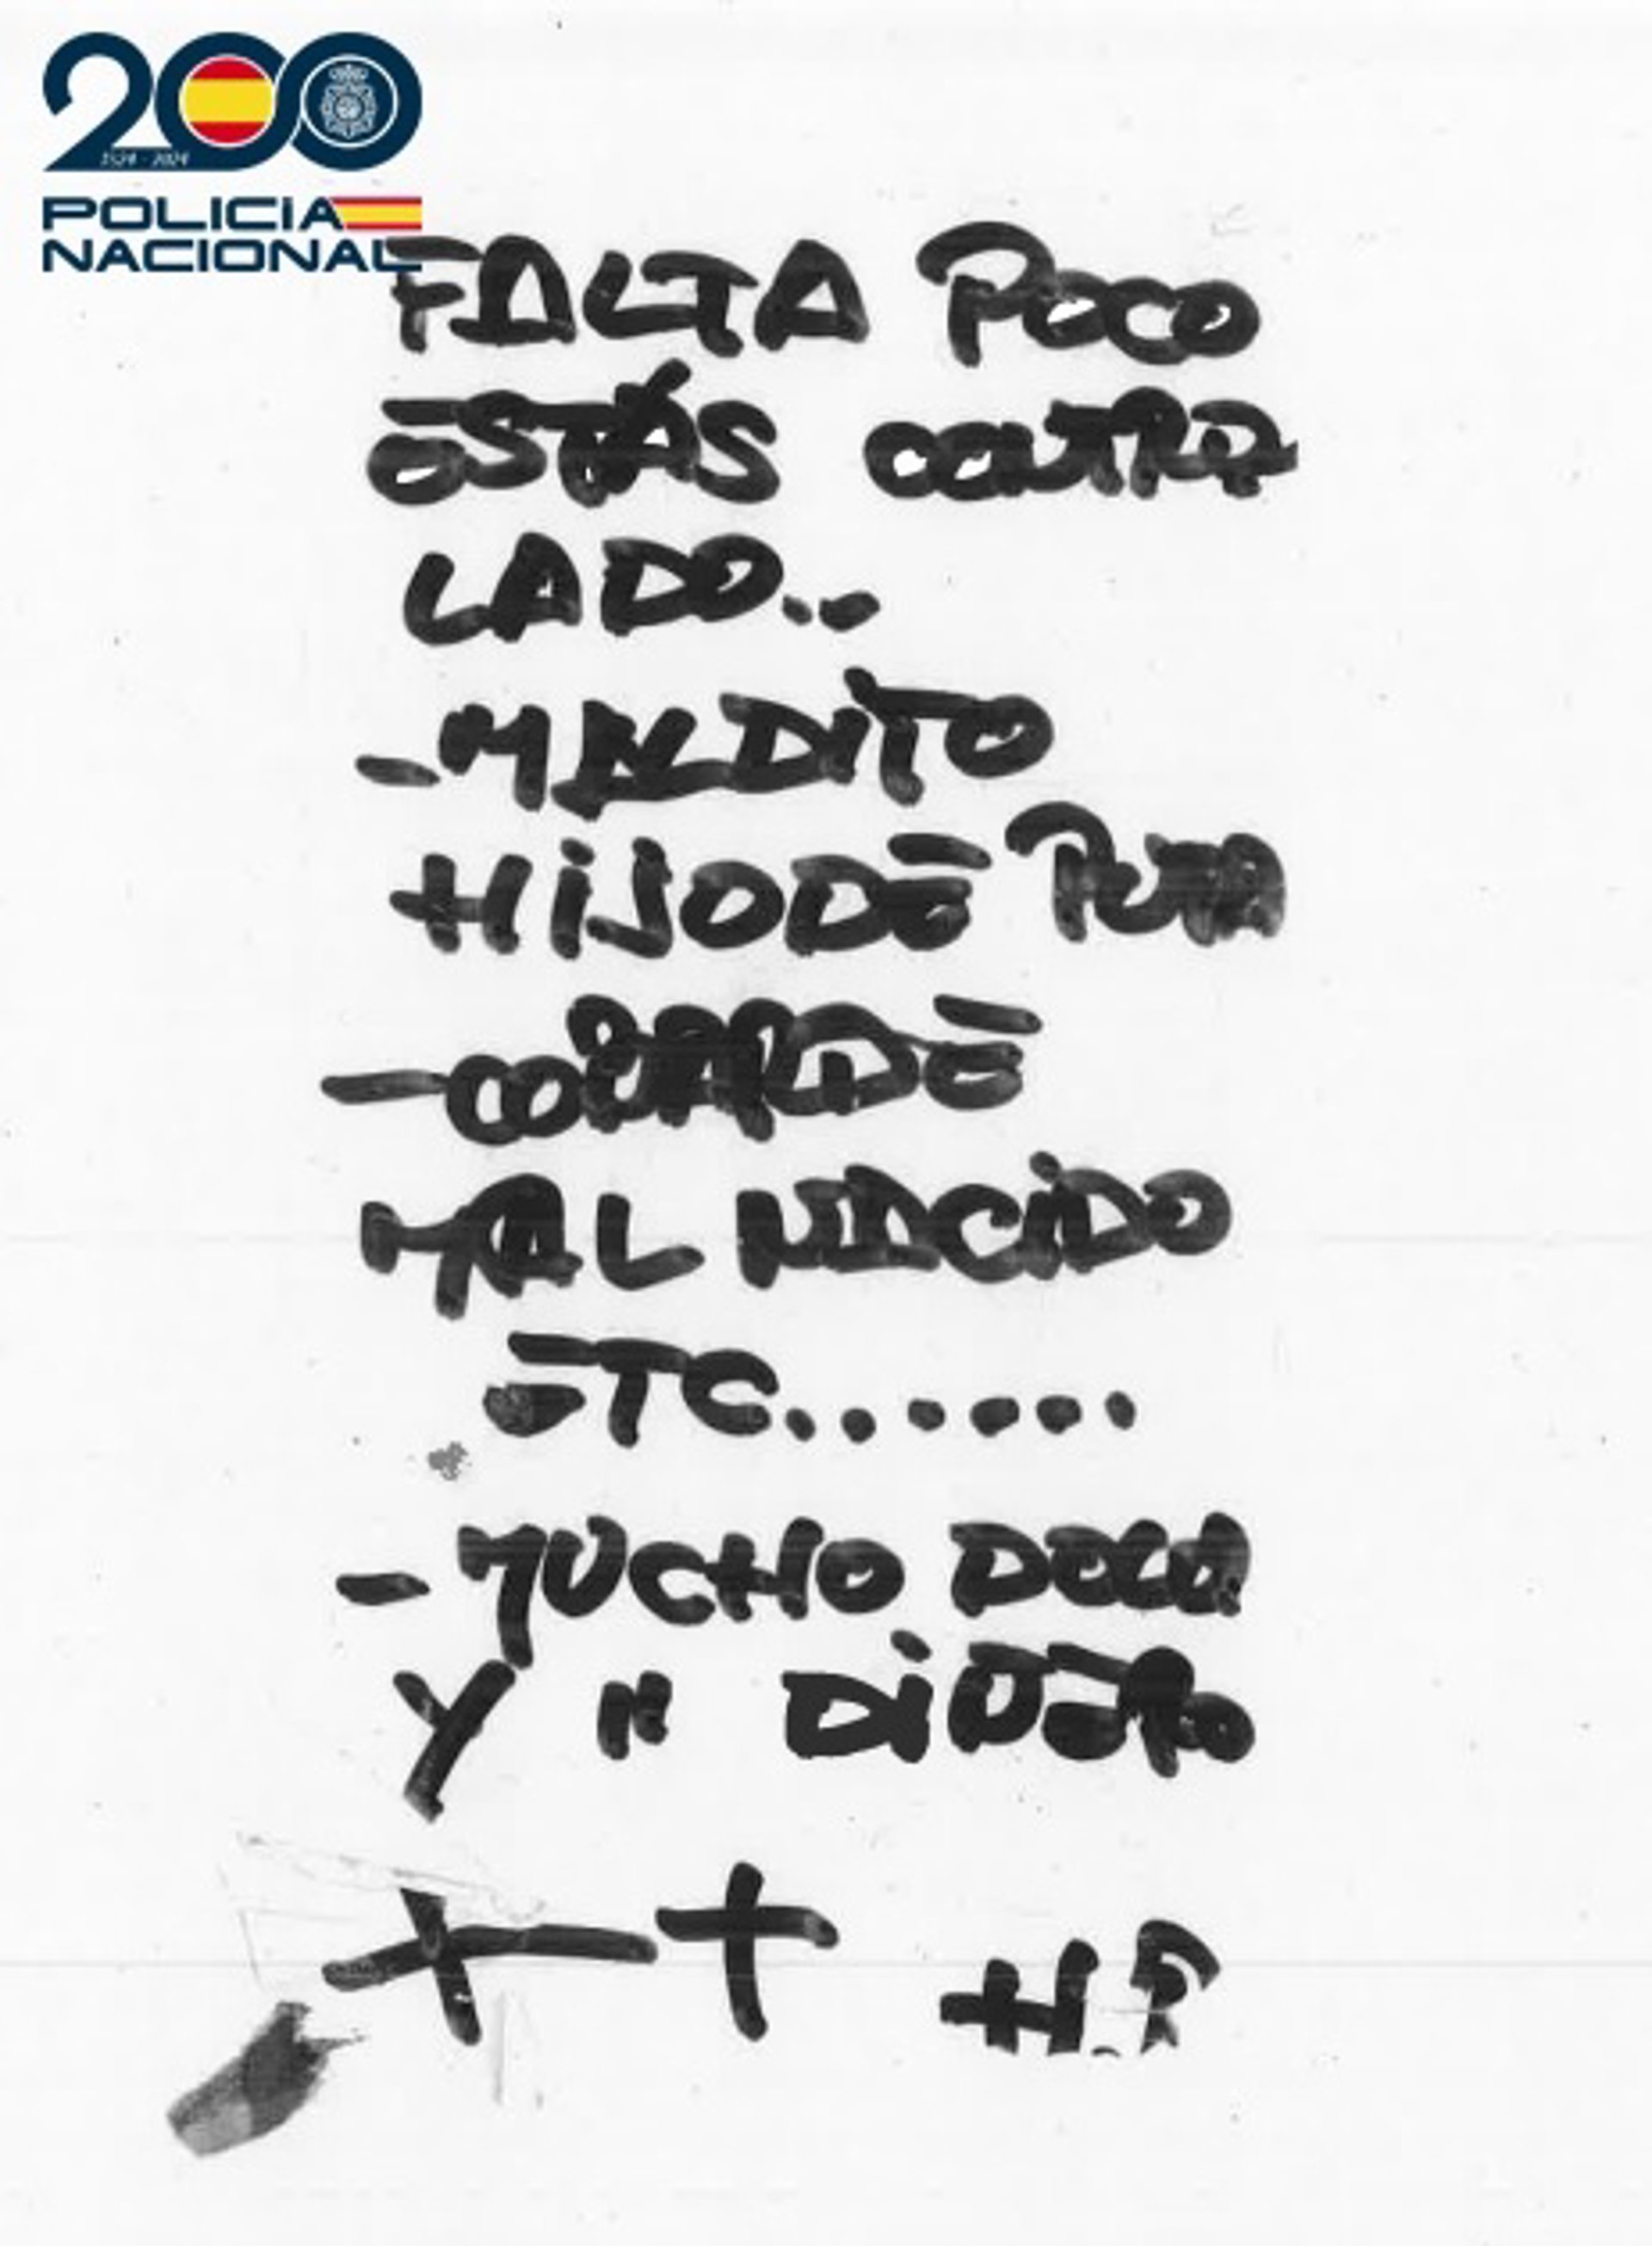 200
1824 - 2024
POLICIA
NACIONAL
FALTA POCO
ESTÁS CONTRA
LADO..
- MALDITO
HIJO DE PUTA
- COBARDE
MAL NACIDO
ETC.......
- MUCHO DOLOR
Y " DINERO
H.P